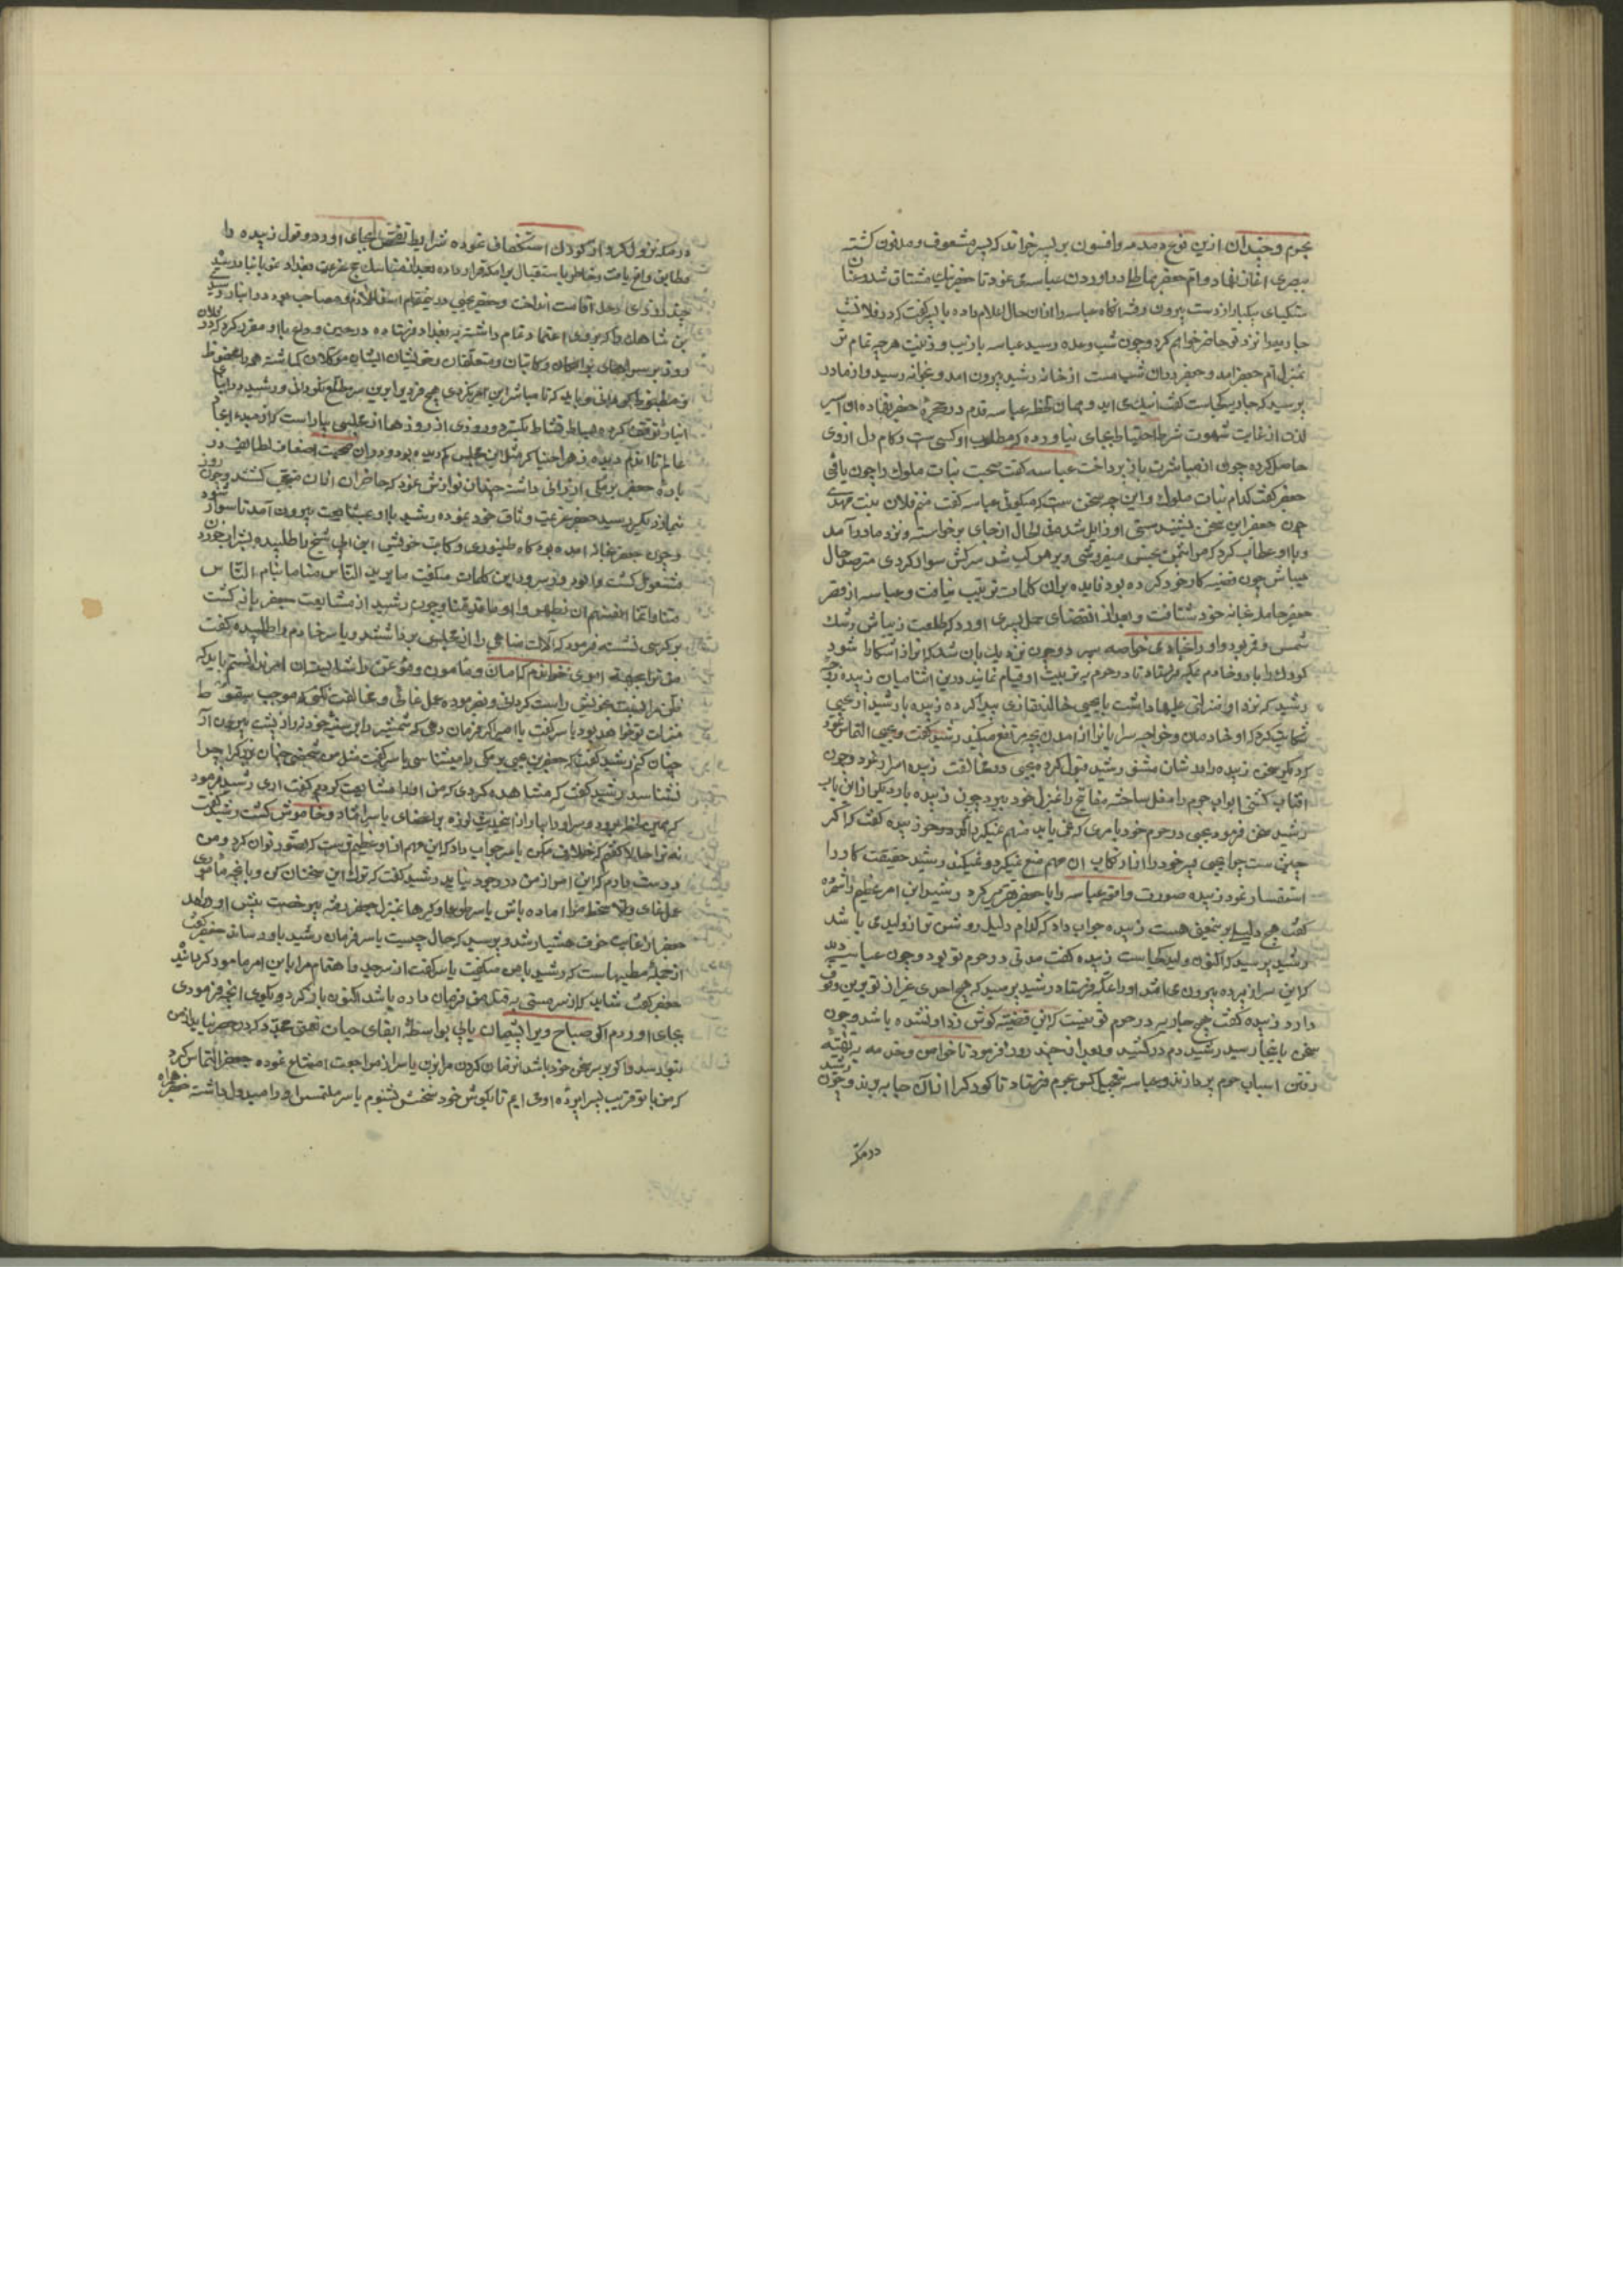 نجوم و چندان ازین نوع دمدمه و افسون بر پسر خواند که پسر مشعوف و مفتون کشته
بصری آغاز نهاد و ام جعفر بماطله در آوردن عباسه می نمود تا جعفر نیك مشتاق شد و عنان
شکیبای بیکبار از دست بیرون رفت انکاه عباسه را از ان حال اعلام داده با پسر کفت که در فلان شب
جاریه را نزد تو حاضر خواهم کرد و چون شب وعده رسید عباسه با زیب و زینت هر چه تمام تر
بمنزل ام جعفر آمد و جعفر دران شب مست از خانه رشید بیرون امد و بخانه رسید و از مادر
پرسید که جاریه کجاست کفت اینك می اید و همان لحظه عباسه قدم در حجره جعفر نهاده ان اسیر
لذت از غایت شهوت شرط احتیاط بجای نیاورده که مطلوب او کیست و کام دل ازوی
حاصل کرده چون از مباشرت باز پرداخت عباسه کفت صحبت بنات ملوك را چون یافتی
جعفر کفت کدام بنات ملوك و این چه سخن ست که میکوئی عباسه کفت منم فلان بنت مهدی
چون جعفر این سخن بشنید مستی او زایل شد فی الحال از جای برخواسته و نزد مادر آمد
و با او عطاب کرد که مرا بثمن بخس میفروشی و بر مرکب سرکش سوار کردی مترصد حال
میباش چون قضیه کار خود کرده بود فایده بران کلمات ترتیب نیافت و عباسه از قصر
جعفر حامله بخانه خود شتافت و بعد از انقضای حمل پسری اورد که طلعت زیباش رشك
شمس و قمر بود و او را بخادمی خواصه سپرد و چون نزدیك بان شد که ان راز اشکارا شود
کودك را با دو خادم بمکه فرستاد تا در حرم به تربیت او قیام نمایند درین اثنا میان زبیده زوجه
رشید که نزد او منزلتی علیها داشت با یحیی خالد نقاری پیدا کرده زبیده با رشید از یحیی
شکایت کرد که او خادمان و خواجه سرایانرا از امدن بحرم منع میکند رشید کفت و یحیی التماس نمود
که دیکر سخن زبیده را در شان مشفق رشید قبول نکرده یحیی در مخالفت زبیده اصرار نمود و چون
افتاب کشتی ابواب حرم را مقفل ساخته مفاتیح را بمنزل خود ببرد چون زبیده بار دیکر ازین باب
رشید سخن فرمود یحیی در حرم خود بامری که نمی باید متهم نمیکردانم زبیده کفت که اکر
چنین ست چرا یحیی پسر خود را از ارتکاب ان مهم منع نمیکرد و نمیکند رشید حقیقت کار را
استفسار نمود زبیده صورت واقعه عباسه را با جعفر تقریر کرد رشید این امر عظیم داشته
کفت هیچ دلیل بر تحقیق هست زبیده جواب داد که کدام دلیل روشن تر از ولیدی باشد
رشید پرسید که اکنون ولید کجاست زبیده کفت مدتی در حرم تو بود و چون عباسه دید
که این سر از پرده بیرون می افتد او را بمکه فرستاد رشید پرسید که هیچ احدی غیر از تو برین وقوف
دارد زبیده کفت هیچ جاریه در حرم تو نیست که این قضیه کوش زد او نشده باشد و چون
سخن باینجا رسید رشید دم در کشید و بعد از چند روز فرمود تا خواص و خدمه به تهیه
رفتن اسباب حرم پردازند و عباسه بتعجیل کس بحرم فرستاد تا کودك را از انجا به برند و چون رشید
در مکه
در مکه نزول کرد از کودك استکشاف نموده شرایط تفحص بجای اورد و قول زبیده را
مطابق واقع یافت و خاطر باستقبال برامکه قرار داده بعد از مناسك حج عزیمت بغداد نمود بانبار رسید
چند روزی رحل اقامت انداخت و جعفر یحیی در ینمقام
بن شاهك را که بروی اعتماد تمام داشت به بغداد فرستاده در حین وداع با او مقرر کرد که در فلان
روز بر سراهای برامکه و کاتبان و متعلقان و خویشان ایشان موکلان کماشته همه را محفوظ
و مضبوط کردانی و باید که تا مباشر این امر نکردی هیچ فردی را برین سر مطلع نکردانی و رشید در انبار
انبار توقف کرده بساط نشاط بکسترد و روزی از روزها از مجلسی بیاراست که از مبدء ایجاد
عالم تا اندم دیده زهرا جنیا کر مثل این مجلس کم دیده بود و دران صحبت اصناف لطایف در
باره جعفر برمکی ارزانی داشته چندان نوازش نمود که حاضران ازان متعجب کشتند و چون
نماز دیکر رسید جعفر عزیمت وثاق خود نموده رشید با او بمشایعت بیرون آمد تا سوار شود
و چون جعفر بخانه امده بود کاه طنبوری و کاتب خویش ابن ابی شیخ را طلبیده بشراب خوردن
مشغول کشت و ابو زکار سرود این کلمات میکفت ما یرید الناس منا ما ینام الناس
عنا انما همتهم ان یظهروا ما قد دفنا و چون رشید از مشایعت جعفر بازکشت
بر کرسی نشسته فرمود که آلات ملاهی را از مجلس برداشتند و یاسر خادم را طلبیده کفت
من ترا بجهة امری خوانده ام که امین و مامون و موتمن را شایسته ان امر ندانستم باید که
ظن مرا نسبت بخویش راست کردانی و بفرموده عمل نمائی و مخالفت نکنی که موجب سقوط
منزلت تو خواهد بود یاسر کفت یا امیر اکر فرمان دهی که شمشیر را بر سینه خود نهم و از پشت بیرون ار
چنان کنم رشید کفت که جعفر بن یحیی برمکی را میشناسی یاسر کفت مثل من شخصی چنان بزرك را چرا
نشناسد رشید کفت که مشاهده کردی که من او را مشایعت کردم کفت اری رشید فرمود
که همین لحظه برو و سر او را بیار از انحدیث لرزه بر اعضای یاسر افتاد و خاموش کشت رشید کفت
نه ترا حالا کفتم که خلاف مکن یاسر جواب داد که این مهم از ان عظیم ترست که تصور توان کرد و من
دوست دارم که این امر از من در وجود نیاید رشید کفت که ترك این سخنان کن و بانچه ماموری
عمل نمای و الا سخط مرا اماده باش یاسر طوعا و کرها بمنزل جعفر رفته بیرخصت پیش او درامد
جعفر از غایت خوف هشیار شد و پرسید که حال چیست یاسر فرمان رشید باو رسانید جعفر کفت
از جمله مطیبهاست که رشید با من میکفت یاسر کفت از سر جد و اهتمام مرا باین امر مامور کردانید
جعفر کفت شاید که از سر مستی به قتل من فرمان داده باشد اکنون باز کرد و بکوی انچه فرمودی
بجای اوردم اکر صباح ویرا پشیمان یابی بواسطه ابقای حیات نعمتی مجدد کردن و ضرر نیابد از من
بتو رسد و اکر بر سر سخن خود باشد فرمان کردن مرا بزن یاسر از مراجعت امتناع نموده جعفر التماس کرد
که من با تو قریب بسراپرده او می ایم تا بکوش خود سخنش بشنوم یاسر ملتمس او را مبذول داشته جعفر همراه